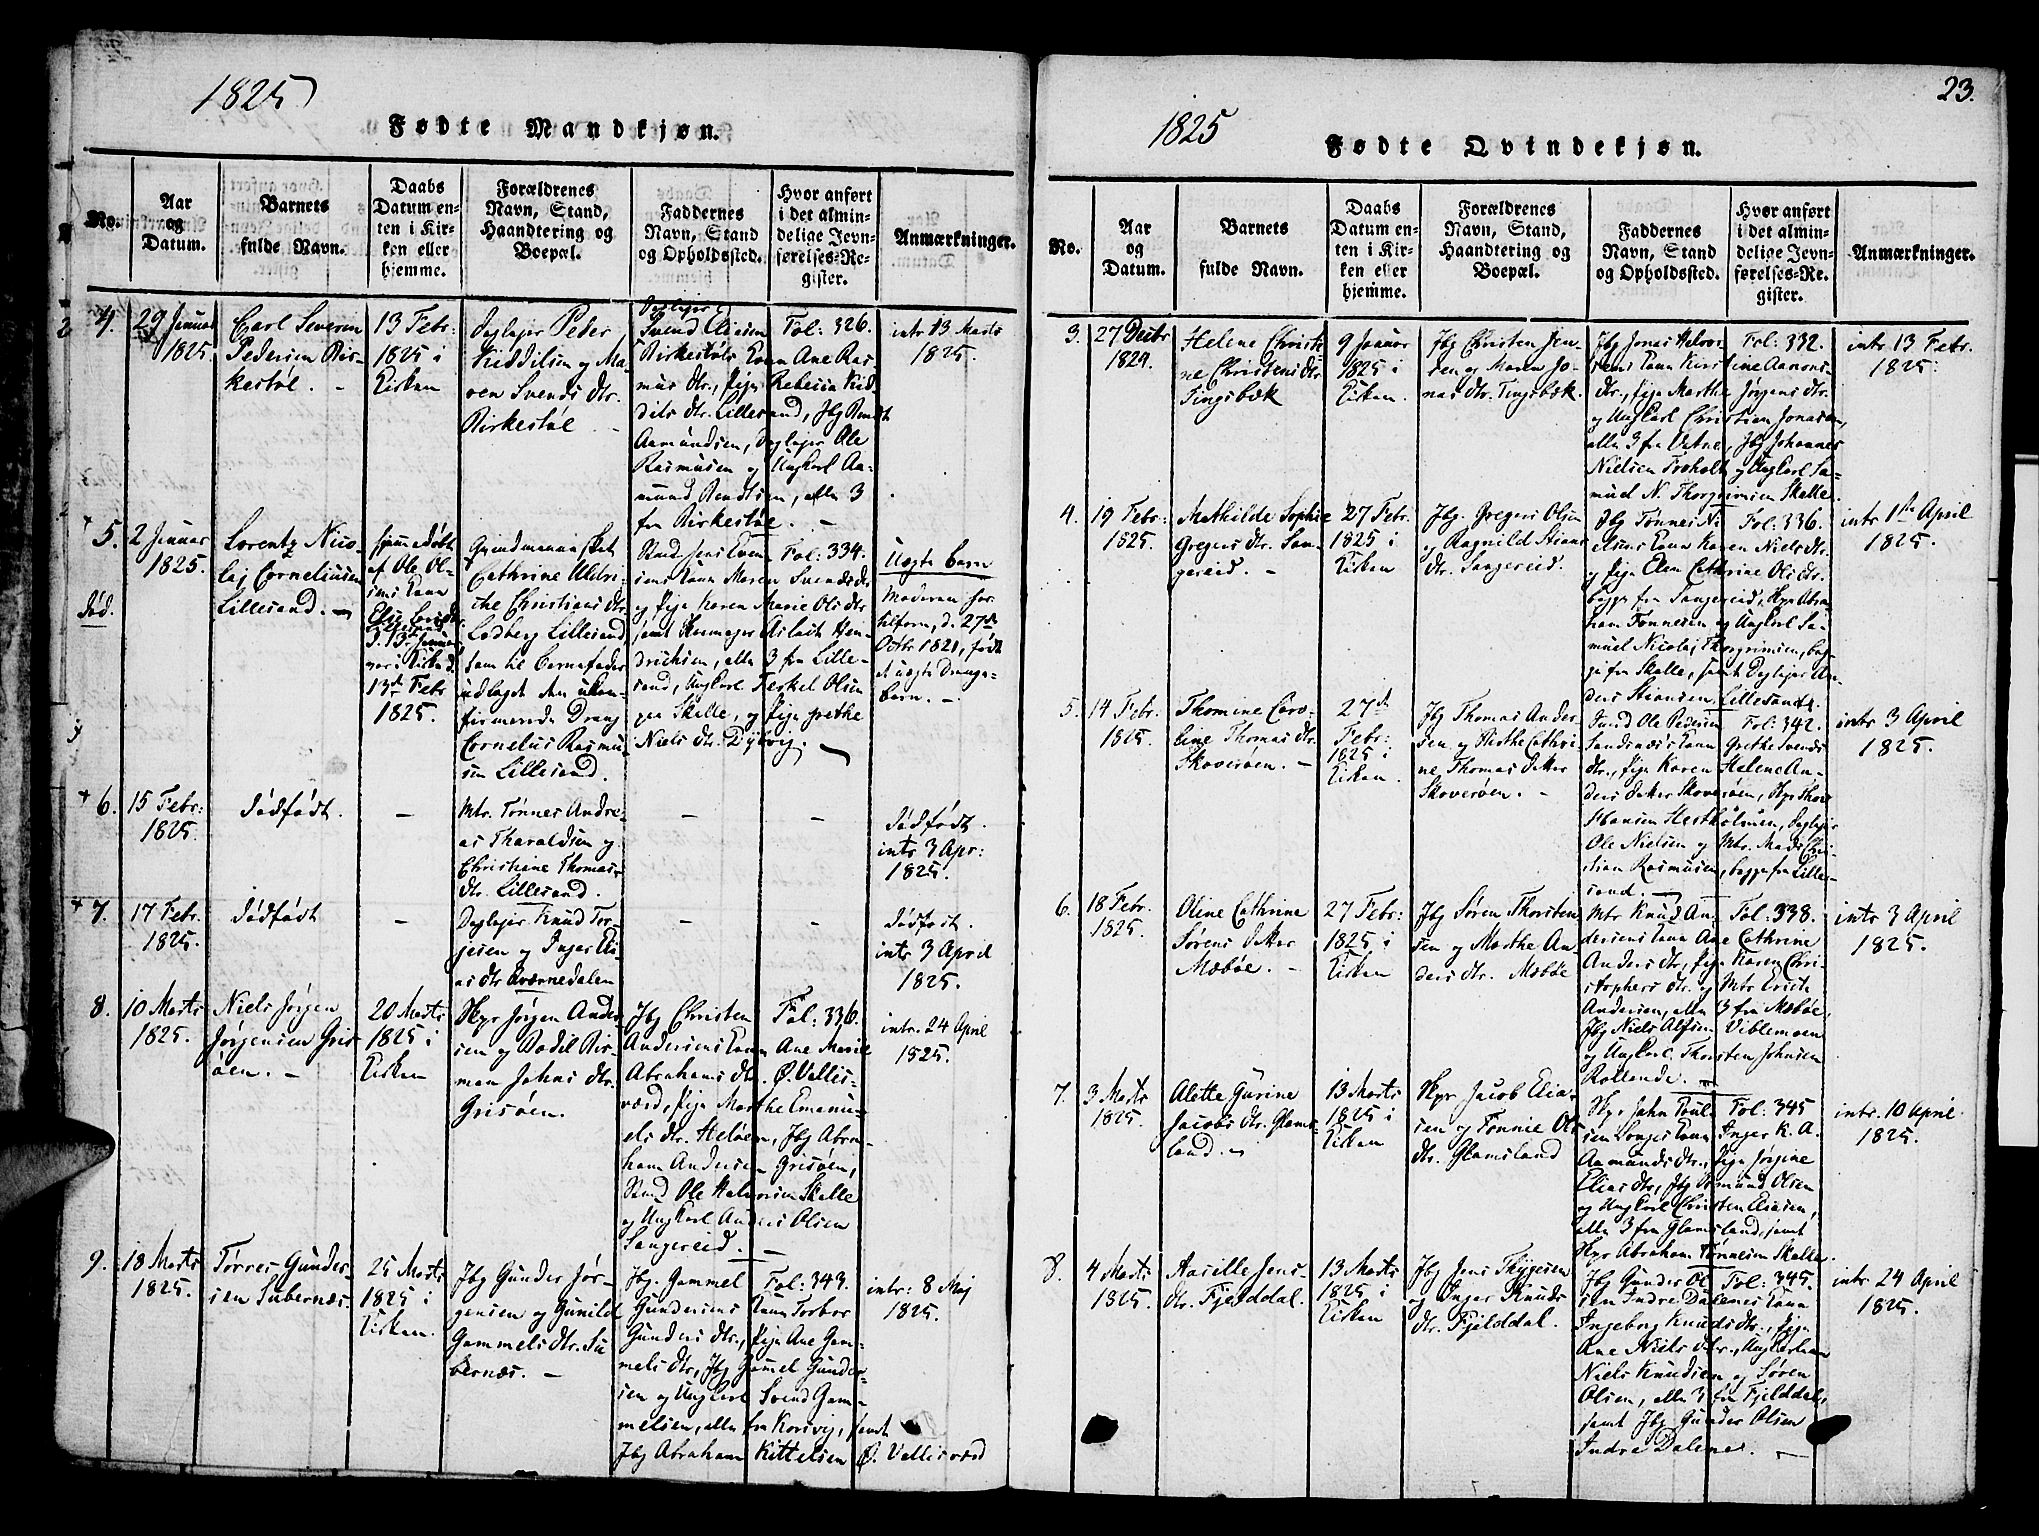 1825
Fødte Mandkjøn.
No.
Aar
og
Datum.
Barnets
fulde Navn.
Daabs
Datum en-
ten i Kir-
ken eller
hjemme.
Forældrenes
Navn, Stand,
Haandtering og
Boepæl.
Faddernes
Navn, Stand
og Opholdssted.
Hvor anført
i det almin-
delige Jevn-
førelses-Re-
gister.
Anmærkninger.
4.
29 Januar
1825.
Carl Severin
Pedersen Bir-
kestøl. -
13 Febr:
1825 i
Kirken
Daglejer Peder
Kiddilsen og Ma-
ren Svends dtr.
Birkestøl
Daglejer
Svend Eliasen
Birkestøls Kone Ane Ras-
mus dtr., Pige Rebecca Kid-
dils dtr. Lillesand, Jbg Bendt
Aamundsen, Daglejer Ole
Rasmusen og Ungkarl Aa-
mund Bendtsen, alle 3
fra Birkestøl. -
Fol: 326.
intr 13 Marts
1825.
+ 5.
død.
2 Januar
1825.
Lorentz Nico-
laj Corneliusen
Lillesand. -
hjemmedøbt
af Ole Ol-
sens Kone
d. 13 Janu-
ar i Kirken d.
13de Febr
1825.
Cathrine Ulri-
che Christians dtr.
Lodberg Lillesand
som til Barnefader
udlagde den ukon-
firmerede Dreng
Cornelius Rasmu-
sen Lillesand.
Mad. Jens Even-
sens Kone Maren Svends dtr
og Pige Karen Marie Ols dtr
samt Aslach Hen-
drichsen, alle 3 fra Lille-
sand, Ungkarl Terkel Olsen
paa Skalle, og Pige Grethe
Niels dtr. Dybvig. -
Fol: 334.
Uægte Barn
Moderen har
tilforn, d. 27de
Octbr 1821, født
et uægte Drenge-
barn. -
+ 6.
15 Febr:
1825.
dødfødt.
-
Mtr. Tønnes Andre-
as Tharaldsen og
Christiane Thomas-
dtr. Lillesand.
-
-
dødfødt.
intr 3 Apr:
1825.
+ 7.
17 Febr.
1825.
dødfødt
-
Daglejer Knud Tor-
jesen og Inger Eli-
as dtr Kværnedalen
-
-
dødfødt.
intr 3 April
1825.
8.
10 Marts
1825.
Niels Jørgen
Jørgensen Gris-
øen. -
20 Marts
1825 i
Kirken
Hpr Jørgen Ander-
sen og Bodil Bir-
man Johns dtr.
Grisøen.
Jbg Christen
Andersens Kone Ane Marie
Abrahams dtr. Ø. Vallis-
værd, Pige Marthe Emanu-
els dtr. Heløen, Jbg Abra-
ham Andersen Grisøen,
Mad Ole Halvorsen Skalle
og Ungkarl Anders Olsen
Sangereid. -
Fol: 336.
intr. 24 April
1825.
9.
18 Marts
1825.
Tørres Gunder-
sen Tubernæs.
25 Marts
1825 i
Kirken.
Jbg Gunder Jør-
gensen og Gunild
Gammels dtr. Tu-
bernæs. -
Jbg. Gammel
Gundersens Kone Torbor
Gunders dtr., Pige Ane Gam-
mels dtr, Jbg Gamel Gunder-
sen og Ungkarl Svend Gam-
melsen, alle fra Korsvig, samt
Jbg Abraham Kittelsen Ø. Vallisværd
Fol: 343.
intr: 8 Maj
1825.
23.
1825
Fødte Qvindekjøn.
No.
Aar
og
Datum.
Barnets
fulde Navn.
Daabs
Datum en-
ten i Kir-
ken eller
hjemme.
Forældrenes
Navn, Stand,
Haandtering og
Boepæl.
Faddernes
Navn, Stand
og Opholdssted.
Hvor anført
i det almin-
delige Jevn-
førelses-Re-
gister.
Anmærkninger.
3.
27 Decbr
1824.
Helene Christi-
ne Christens dtr.
Tingsbæk
9 Januar
1825 i
Kirken.
Jbg Christen Jen-
sen og Maren Jo-
nas dtr. Tingsbæk.
Jbg Jonas Halvor-
sens Kone Kirstine Aanons-
dtr., Pige Marthe Jørgens dtr.
og Ungkarl Christen Jonasen,
alle 3 fra Urane, Jbg Johannes
Nielsen Troholt og Ungkarl Sa-
muel N. Thorgrimsen Skalle.
Fol: 332.
intr. 13 Febr.
1825.
4.
19 Febr:
1825.
Mathilde Sophie
Gregers dtr. San-
gereid. -
27 Febr.
1825 i
Kirken
Jbg. Gregers Olsen
og Ragnild Stians
dtr. Sangereid.
Jbg Tønnes Ni-
elsens Kone Karen Niels dtr.
og Pige Elen Cathrine Ols dtr.
begge fra Sangereid, Hpr Abra-
ham Tønnesen og Ungkarl Sa-
muel Nicolaj Thorgrimsen, beg-
ge fra Skalle, samt Daglejer An-
ders Stiansen Lillesand.
Fol: 336.
intr 1ste April
1825.
5.
14 Febr.
1825.
Thomine Caro-
line Thomas dtr.
Skoverøen. -
27de
Febr:
1825 i
Kirken.
Jbg Thomas Ander-
sen og Birthe Cathri-
ne Thomas datter
Skoverøen. -
Svend Ole Pedersen
Sandsnæs Kone Grethe Svends
dtr., Pige Karen Helene An-
ders datter Skoverøen, Hpr Thor
Hansen Hestholmen, Daglejer
Ole Nielsen og Mtr. Mads Chri-
stian Rasmusen, begge fra Lille-
sand. -
Fol: 342.
intr 3 April
1825.
6.
18 Febr.
1825.
Oline Cathrine
Sørens datter
Møbøe. -
27 Febr:
1825 i
Kirken
Jbg Søren Thorsten-
sen og Marthe An-
ders dtr. Møbøe
Mtr Knud An-
dersens Kone Ane Cathrine
Anders dtr, Pige Karen Chri-
stophers dtr. og Mtr Erich
Andersen, alle 3 fra Møbøe,
Jbg Niels Alfsen Viblemoen
og Ungkarl Thorsten Johnsen
Kollende. -
Fol: 338.
intr 3 April
1825.
7.
3 Marts
1825.
Alette Gurine
Jacobs dtr. Glams-
land. -
13 Marts
1825 i
Kirken
Hpr Jacob Elia-
sen og Tonnie Ols
dtr. Glamsland
Hpr John Pouls-
sen Longes Kone Inger K. A.
Aamunds dtr., Pige Jørgine
Elias dtr, Jbg Osmund Olsen
og Ungkarl Christen Eliasen,
alle 3 fra Glamsland, samt
Hpr Abraham Tønnesen Skalle.
Fol: 345
intr. 10 April
1825.
8.
4 Marts
1825.
Aasille Jens-
dtr. Fjelddal.
13 Marts
1825 i
Kirken
Jbg Jens Thygesen
og Inger Knuds
dtr. Fjelddal.
Jbg Gunder Ol-
sen Indre Dalenes Kone
Ingeborg Knuds dtr., Pige
Ane Niels dtr., Ungkarlene
Niels Knudsen og Søren
Olsen, alle 3 fra Fjelddal,
samt Jbg Gunder Olsen
Indre Dalene. -
Fol: 345.
intr 24 April
1825.